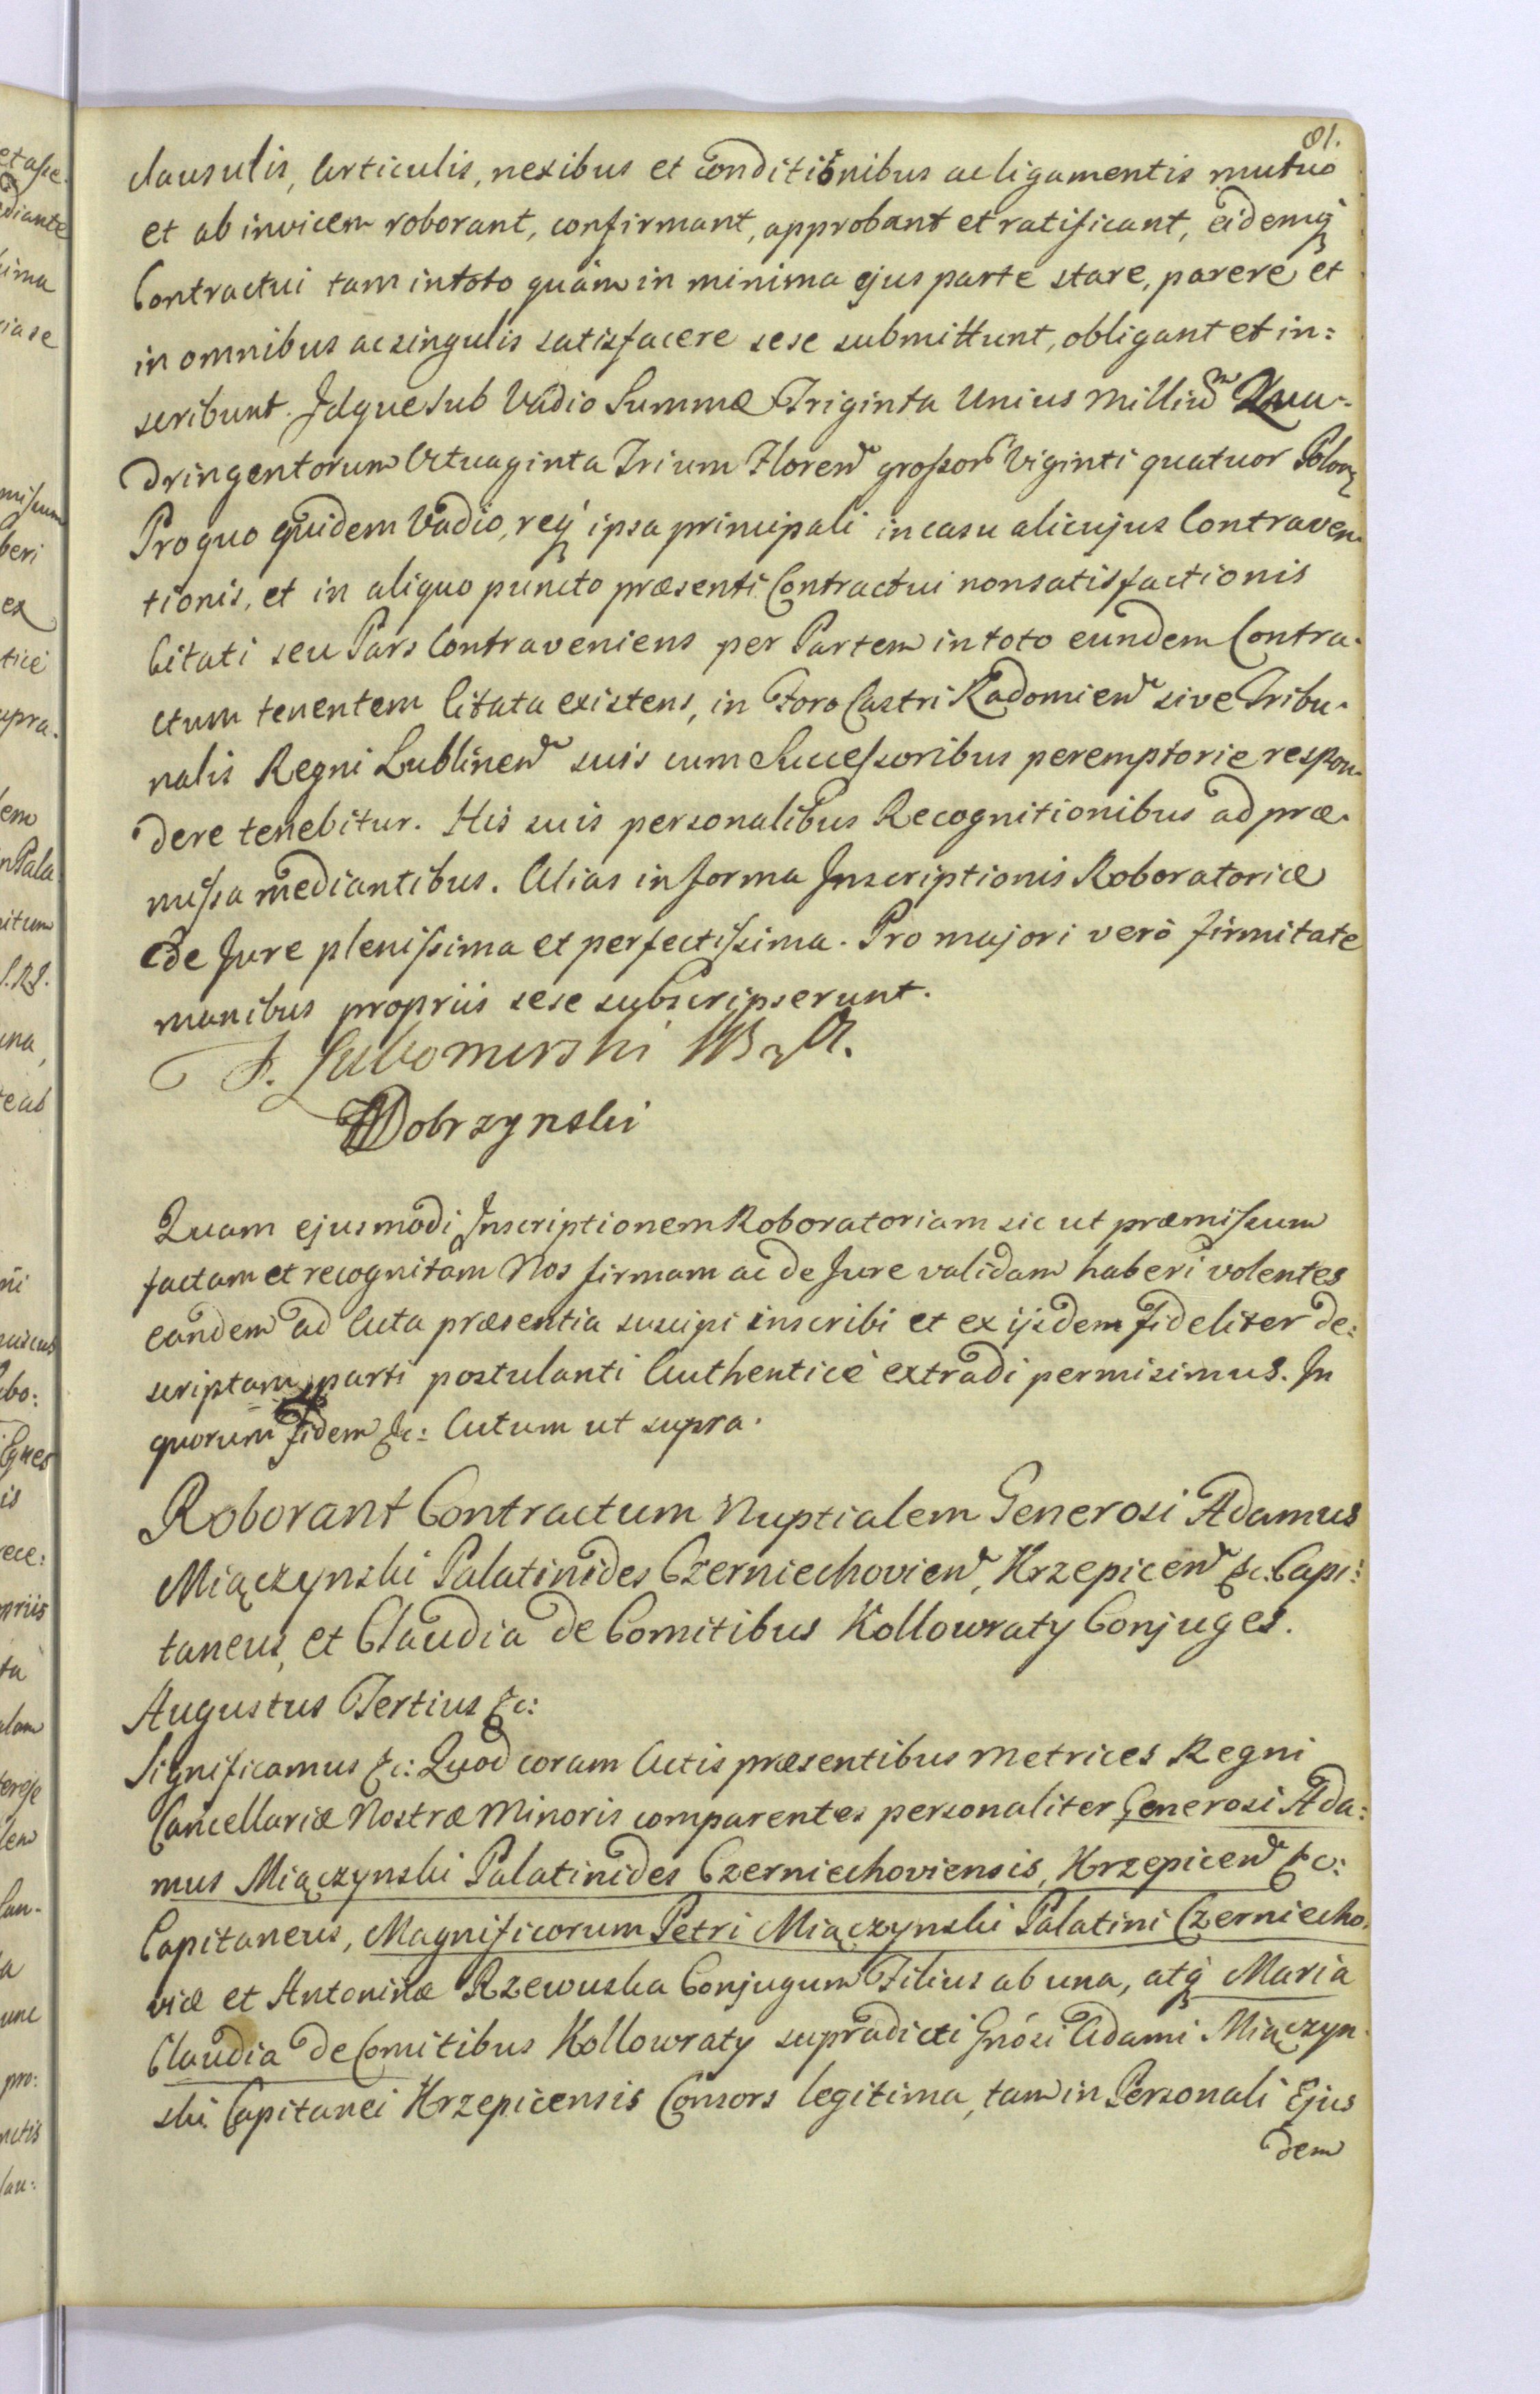 81.
clausulis, Articulis, nexibus et conditionibus ac ligamentis mutuo
et ab invicem roborant, confirmant, approbant et ratificant, eidemq
Contractui tam in toto quàm in minima ejus parte stare, parere et
in omnibus ac singulis satisfacere sese submittunt, obligant et in:
scribunt. Idque sub Vadio Summæ Triginta Unius Milliu͂m Qua-
dringentorum Octuaginta Trium Floren grossor Viginti quatuor Polon
Pro quo quidem Vadio, req ipsa principali in casu alicujus Contraven-
tionis, et in aliquo puncto præsenti Contractui non satisfactionis
Citati seu Pars Contraveniens per Partem in toto eundem Contra-
ctum tenentem Citata existens, in Foro Castri Radomien sive Tribu-
nalis Regni Lublinen suis cum Successoribus peremptorie respon-
dere tenebitur. His suis personalibus Recognitionibus ad præ-
missa mediantibus. Alias in forma Inscriptionis Roboratoriæ
de Jure plenissima et perfectissima. Pro majori verò firmitate
manibus propriis sese subscripserunt.
F. Lubomirski
Dobrzynski
Quam ejusmodi Inscriptionem Roboratoriam sic ut præmissum
factam et recognitam Nos firmam ac de Jure validam haberi volentes
eandem ad Acta præsentia suscipi inscribi et ex ijsdem fideliter de:
scriptam parti postulanti Authenticè extradi permisimus. In
quorum fidem &c: Actum ut supra.
Roborant Contractum Nuptialem Generosi Adamus
Miączynski Palatinides Czerniechovien, Krzepicen &c. Capi:
taneus, et Claudia de Comitibus Kollowraty Conjuges.
Augustus Tertius &c:
Significamus &c: Quod coram Actis præsentibus Metrices Regni
Cancellariæ Nostræ Minoris comparentes personaliter Generosi Ada:
mus Miączynski Palatinides Czerniechoviensis, Krzepicen &c:
Capitaneus, Magnificorum Petri Miączynski Palatini Czerniecho-
viæ et Antoninæ Rzewuska Conjugum Filius ab una, atq Maria
Claudia de Comitibus Kollowraty supradicti Gnósi Adami Miączyn-
ski Capitanei Krzepicensis Consors legitima, tam in Personali Ejus
dem